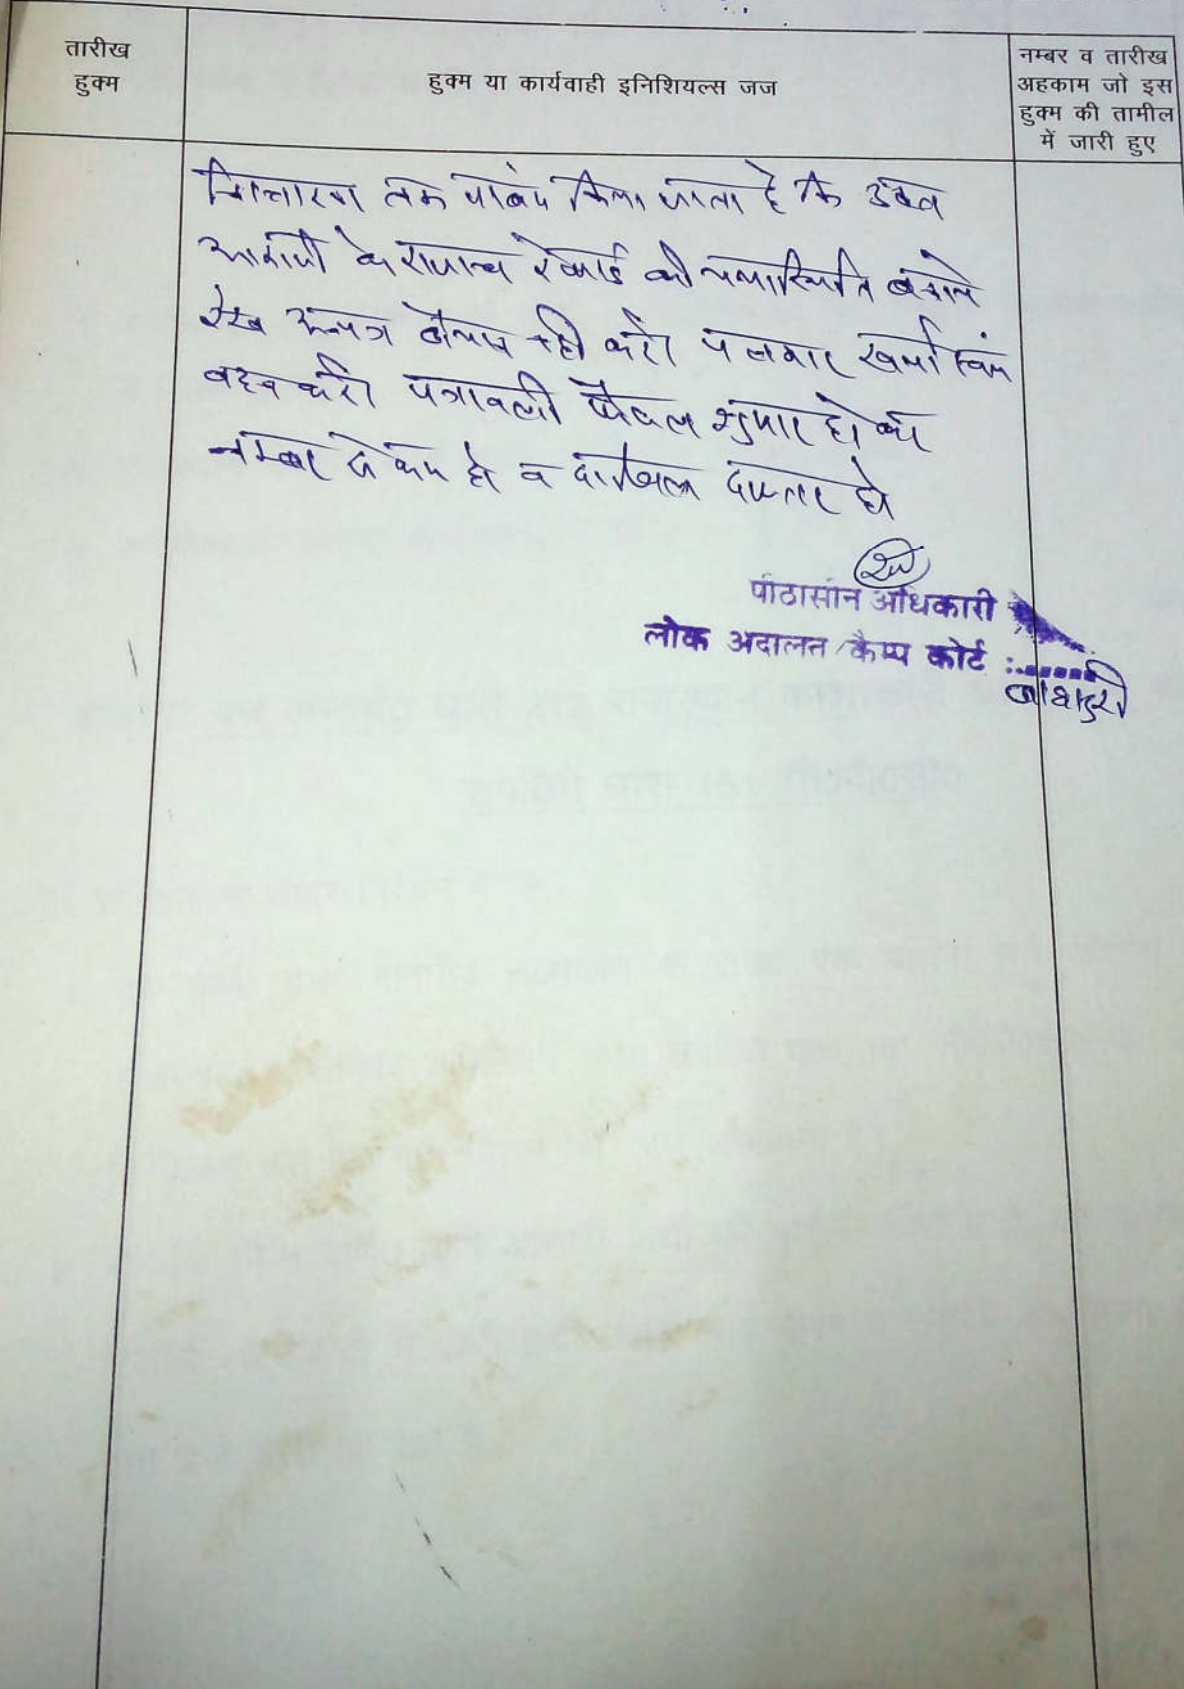 तारीख
हुक्म
हुक्म या कार्यवाही इनिशियल्स जज
नम्बर व तारीख
अहकाम जो इस
हुक्म की तामील
में जारी हुए
निस्तारण तक पाबंद किया जाता है कि उक्त
आराजी के राजस्व रेकार्ड की यथास्थिति बनाये
रखे अन्यत्र बेचान नही करे। खर्चा स्वंय
वहन करे। पत्रावली फैसल शुमार होकर
नम्बर से कम हो व दाखिल दफ्तर हो
पीठासीन अधिकारी
लोक अदालत/कैम्प कोर्ट :